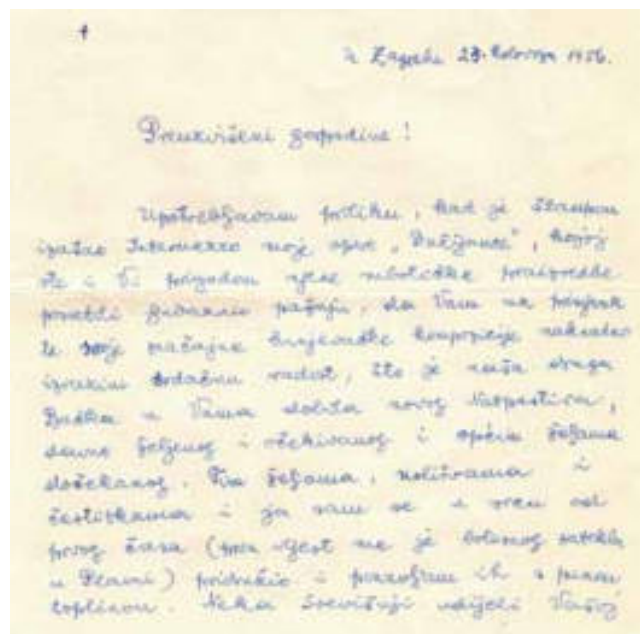 U Zagrebu 23. kolovoza 1956.
Preuzvišeni gospodine!
Upotrebljavam priliku, kad je štampom
izašao Intermezzo moje opere „Dužijanca", kojoj
ste i Vi prigodom njene subotičke praizvedbe
posvetili pažnju, da Vam na
te moje bunjevačke kompozicije naknadno
izrazim srdačnu radost, što je naša draga
Bačka u Vama dobila novog Natpastira,
davno željenog i očekivanog i općim željama
dočekanog. Tim željama, molitvama i
čestitkama i ja sam se u srcu od
prvog časa (prva vijest me je bolesnog zatekla
u) pridružio i ponavljam ih s punom
toplinom. Neka Svevišnji udijeli Vašoj